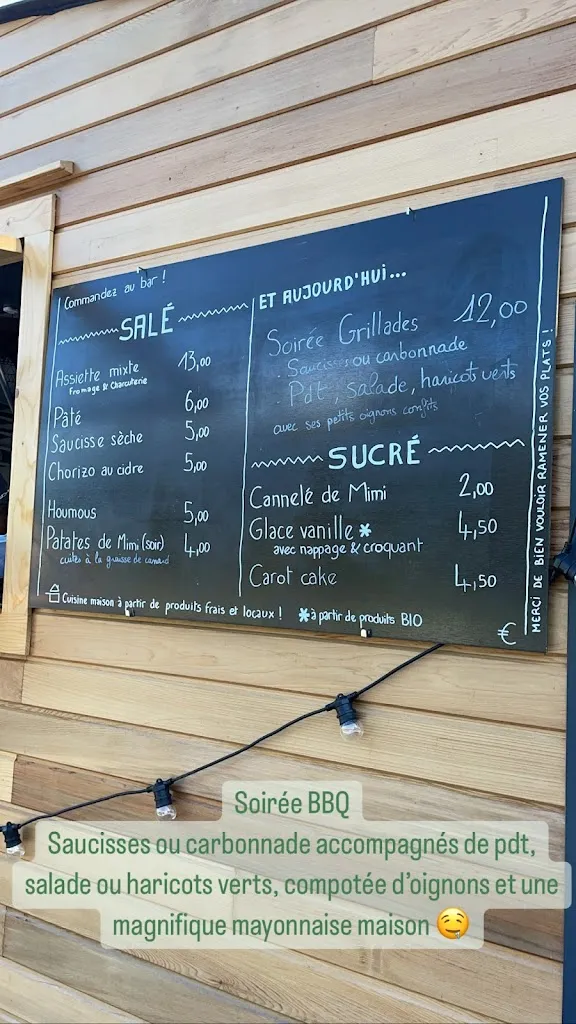 Commandez au bar !
SALÉ
Assiette mixte 13,00
Fromage & Charcuterie
Pâté 6,00
Saucisse sèche 5,00
Chorizo au cidre 5,00
Houmous 5,00
Patates de Mimi (soir) 4,00
cuites à la graisse de canard
ET AUJOURD'HUI...
Soirée Grillades 12,00
- Saucisses ou carbonnade
- Pdt, salade, haricots verts
avec ses petits oignons confits
SUCRÉ
Cannelé de Mimi 2,00
Glace vanille * 4,50
avec nappage & croquant
Carot cake 4,50
Cuisine maison à partir de produits frais et locaux !
* à partir de produits BIO
€
MERCI DE BIEN VOULOIR RAMENER VOS PLATS !
Soirée BBQ
Saucisses ou carbonnade accompagnés de pdt,
salade ou haricots verts, compotée d'oignons et une
magnifique mayonnaise maison 🤤